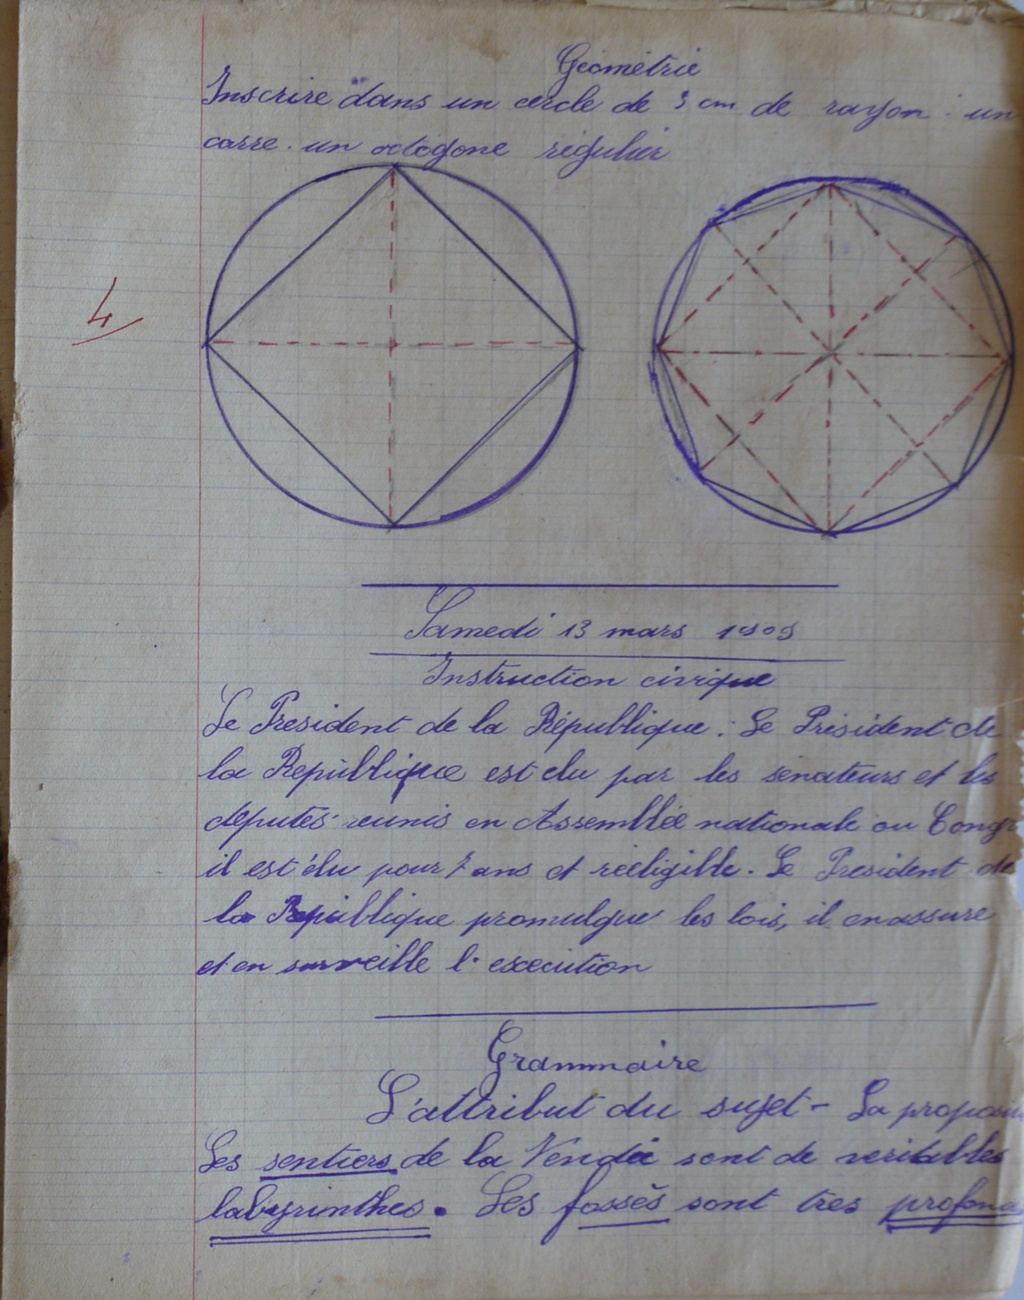 Géométrie
Inscrire dans un cercle de 3 cm de rayon : un
carré. un octogone régulier
4
Samedi 13 mars 1909
Instruction civique
Le President de la République : Le Président de
la République est élu par les sénateurs et les
députés réunis en Assemblée nationale ou Congr
il est élu pour 7 ans et rééligible. Le President de
la République promulgue les lois, il en assure
et en surveille l'execution
Grammaire
L'attribut du sujet - La proposi
Les sentiers de la Vendée sont de veritables
labyrinthes. Les fossés sont très profond